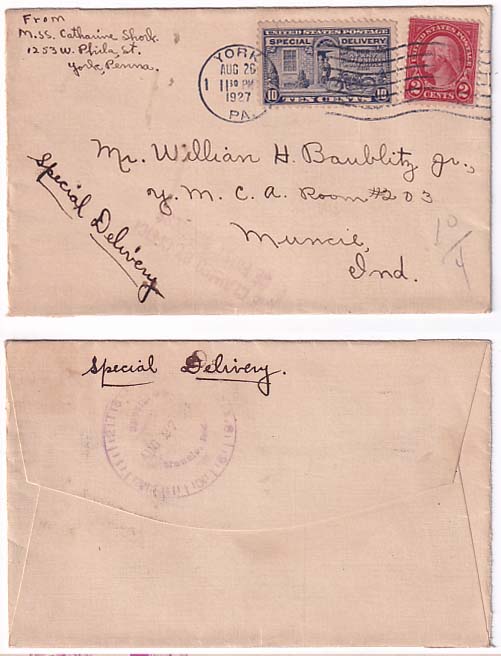 From
Miss. Catharine Shorb.
1253 W. Phila. St.
York, Penna.
YORK
AUG 26
11 30 PM
1927
PA.
1
UNITED STATES POSTAGE
SPECIAL DELIVERY
10 10
TEN CENTS
2 CENTS 2
Mr. William H. Baublitz Jr.,
Y. M. C. A. Room #203
Muncie,
Ind.
Special Delivery
10/4
Special Delivery.